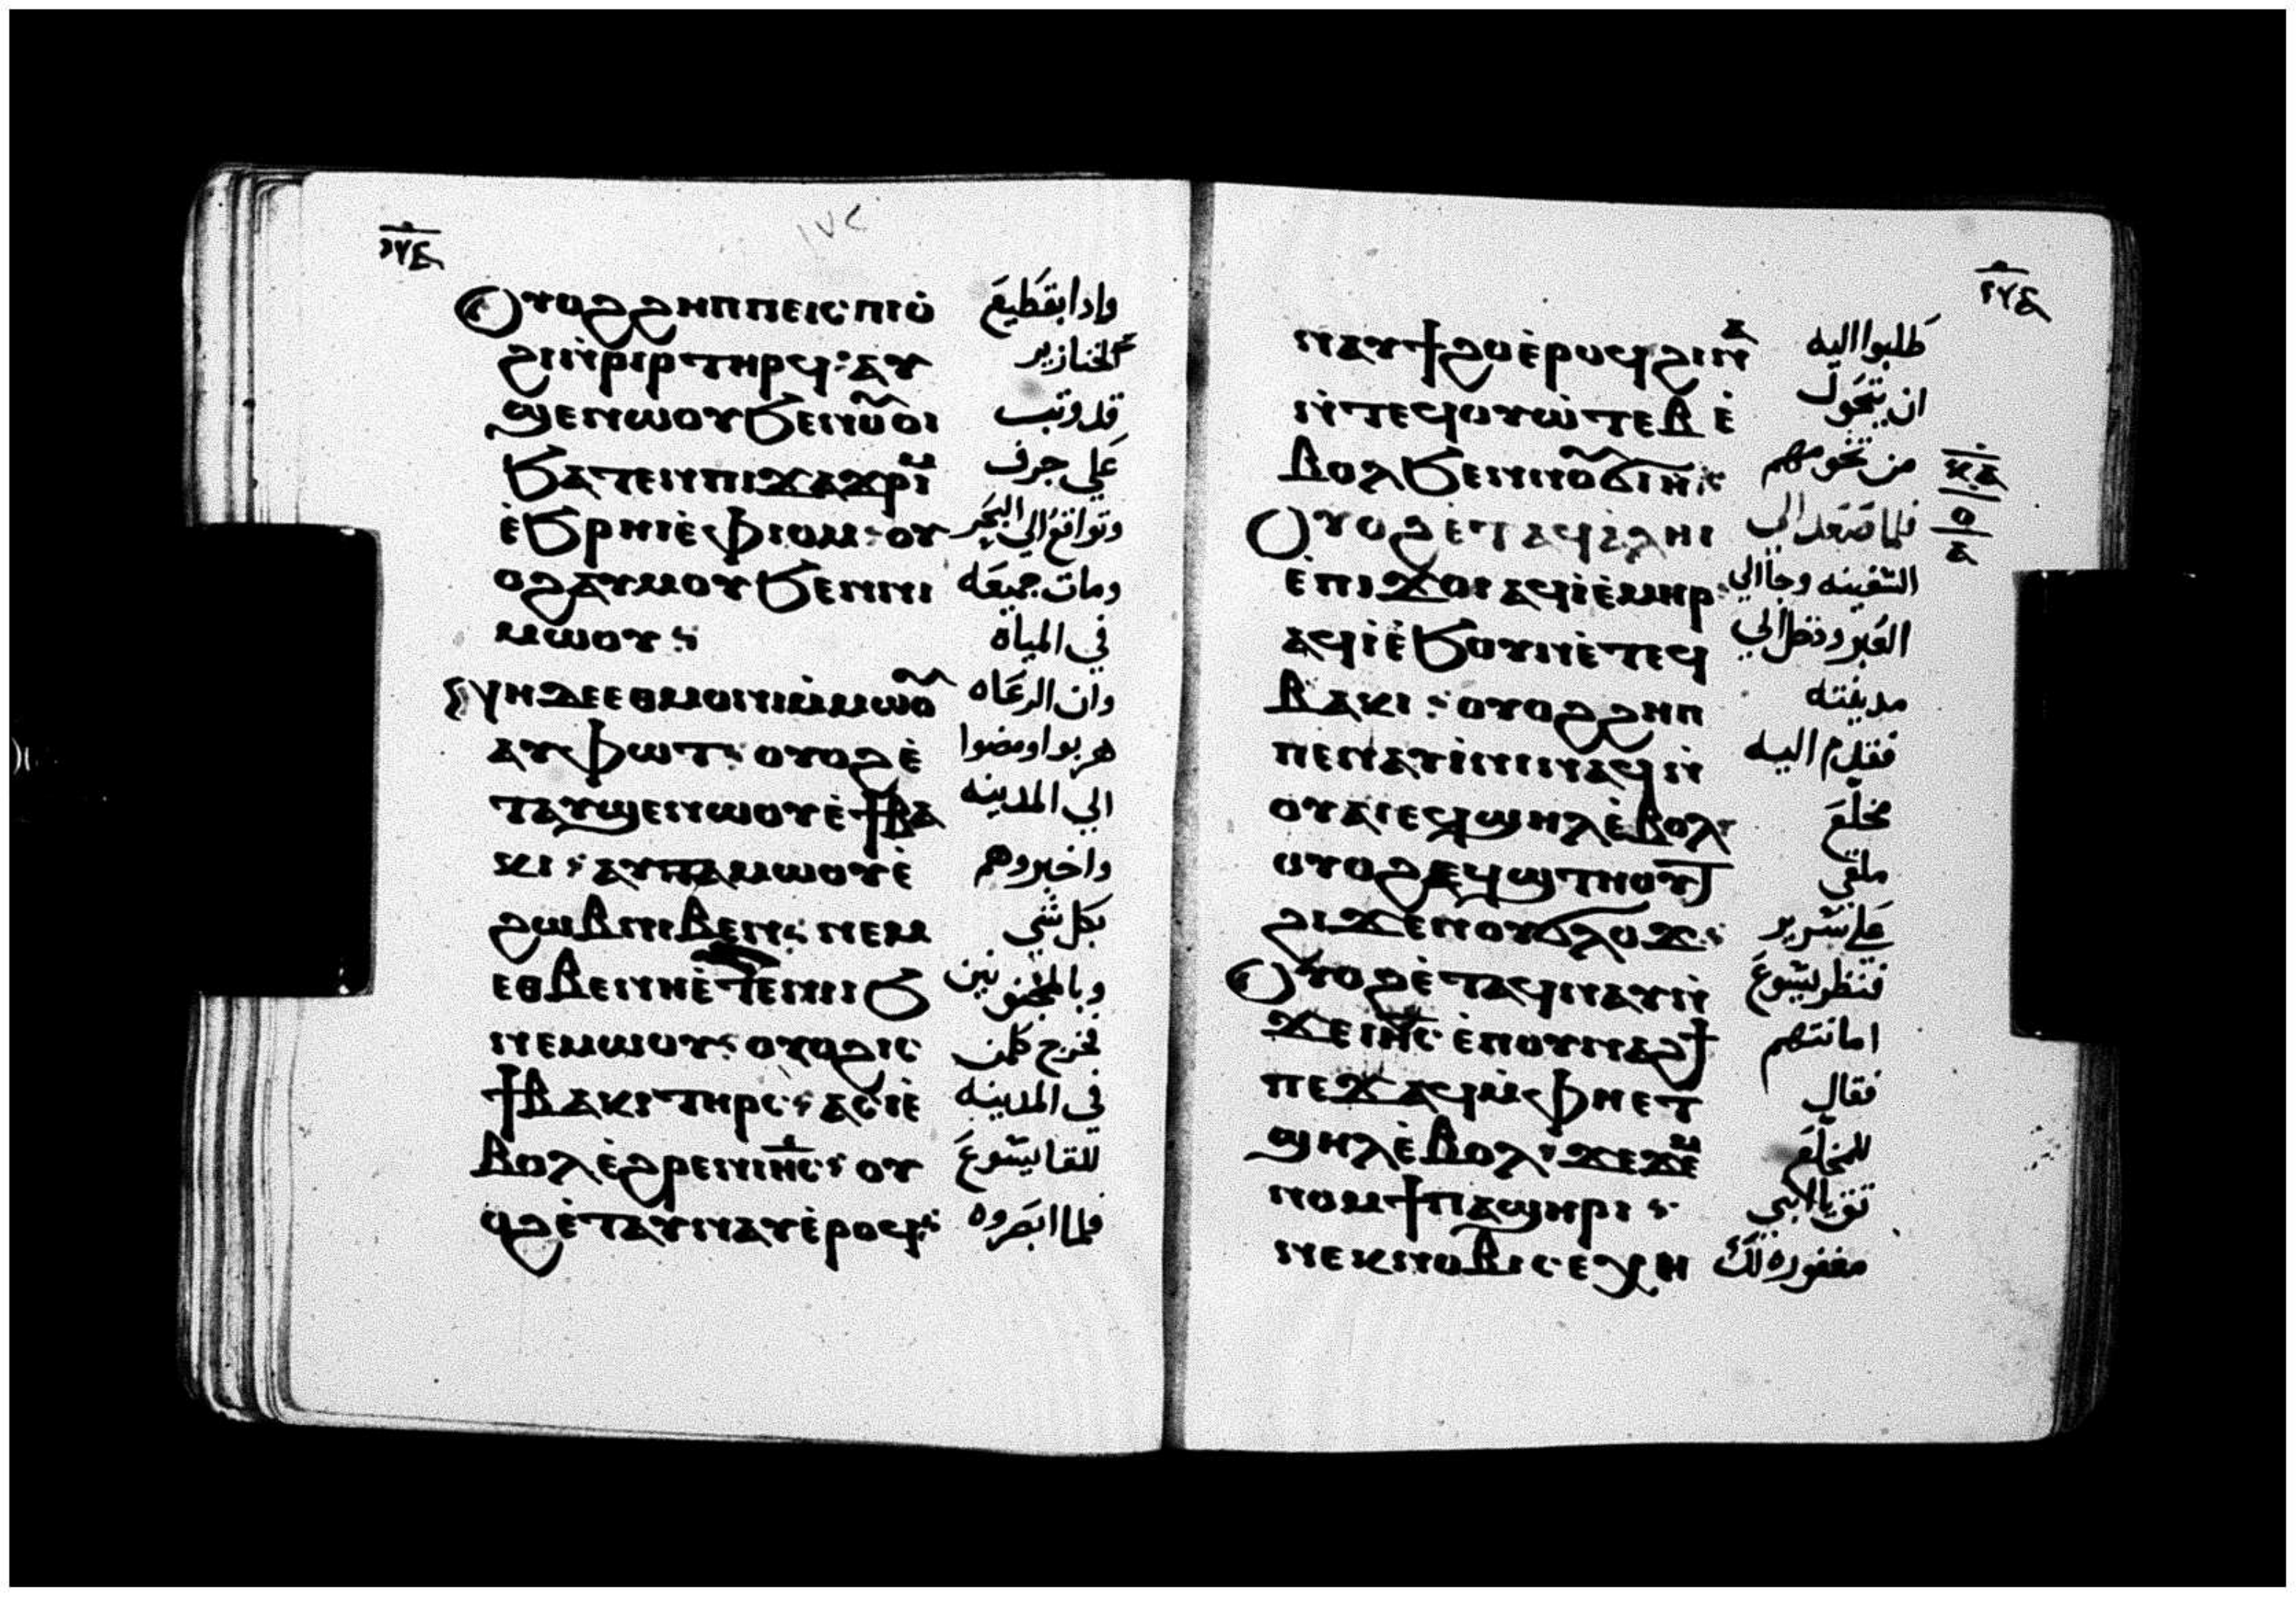 ⲟⲩⲟϩ ϩⲏⲡⲡⲉ ⲓⲥ ⲡⲓⲟ̀
ϩⲓ ⲛ̀ⲣⲓⲣ ⲧⲏⲣϥ: ⲁⲩ
ϣⲉⲛⲱⲟⲩ ϧⲉⲛ ⲟⲩⲟⲓ
ϧⲁⲧⲉⲛ ⲡⲓϫⲁϫⲣⲓⲙ
ⲉ̀ϧⲣⲏⲓ ⲉ̀ ⲫⲓⲟⲙ: ⲟⲩ
ⲟϩ ⲁⲩⲙⲟⲩ ϧⲉⲛ ⲛⲓ
ⲙⲱⲟⲩ:
ⲛⲏ ⲇⲉ ⲉⲑⲙⲟⲛⲓ ⲙ̀ⲙⲱⲟⲩ
ⲁⲩⲫⲱⲧ: ⲟⲩⲟϩ ⲉ̀
ⲧⲁⲩϣⲉⲛⲱⲟⲩ ⲉ̀ϯⲃⲁ
ⲕⲓ: ⲁⲩⲧⲁⲙⲱⲟⲩ ⲉ̀
ϩⲱⲃ ⲛⲓⲃⲉⲛ: ⲛⲉⲙ
ⲉⲑⲃⲉ ⲛⲏ ⲉ̀ⲧⲉ ⲛⲓⲓϧ
ⲛⲉⲙⲱⲟⲩ: ⲟⲩⲟϩ ⲓⲥ
ϯⲃⲁⲕⲓ ⲧⲏⲣⲥ: ⲁⲥⲓ̀ ⲉ̀
ⲃⲟⲗ ⲉ̀ϩⲣⲉⲛ ⲓⲏⲥ: ⲟⲩ
ⲟϩ ⲉ̀ⲧⲁⲩⲛⲁⲩ ⲉ̀ⲣⲟϥ:
واذا بقطيع
الخنازير
قد وثب
علي جرف
وتواقع الي البحر
ومات جميعه
في المياه
وان الرعاه
هربوا ومضوا
الي المدينه
واخبروهم
بكل شي
وبالمجنونين
فخرج كلمن
في المدينه
للقا يسوع
فلما ابصروه
ⲛⲁⲩϯϩⲟ ⲉ̀ⲣⲟϥ ϩⲓⲛⲁ
ⲛ̀ⲧⲉϥⲟⲩⲱⲧⲉⲃ ⲉ̀
ⲃⲟⲗ ϧⲉⲛ ⲛⲟⲩϭⲓⲏ:
ⲟⲩⲟϩ ⲉ̀ⲧⲁϥⲁ̀ⲗⲏⲓ
ⲉ̀ⲡⲓϫⲟⲓ ⲁϥⲓ̀ ⲉ̀ⲙⲏⲣ:
ⲁϥⲓ̀ ⲉ̀ϧⲟⲩⲛ ⲉ̀ⲧⲉϥ
ⲃⲁⲕⲓ: ⲟⲩⲟϩ ϩⲏⲡ
ⲡⲉ ⲛⲁⲩⲓ̀ⲛⲓ ⲛⲁϥ ⲛ̀
ⲟⲩⲁⲓ ⲉϥϣⲏⲗ ⲉ̀ⲃⲟⲗ:
ⲟⲩⲟϩ ⲉϥϣⲧⲏⲟⲩⲧ
ϩⲓϫⲉⲛ ⲟⲩϭⲗⲟϫ:
ⲟⲩⲟϩ ⲉ̀ⲧⲁϥⲛⲁⲩ ⲛ̀
ϫⲉ ⲓⲏⲥ ⲉ̀ⲡⲟⲩⲛⲁϩϯ
ⲡⲉϫⲁϥ ⲙ̀ⲫⲏ ⲉⲧ
ϣⲏⲗ ⲉ̀ⲃⲟⲗ: ϫⲉ ϫⲉⲙ
ⲛⲟⲙϯ ⲡⲁϣⲏⲣⲓ:
ⲛⲉⲕⲛⲟⲃⲓ ⲥⲉⲭⲏ
طلبوا اليه
ان يتحول
من تخومهم
فلما صعد الي
السفينه وجا الي
العبر ودخل الي
مدينته
فقدم اليه
مخلع
ملقي
علي سرير
فنظر يسوع
امانتهم
فقال
للمخلع
ثق يا ابني
مغفوره لك